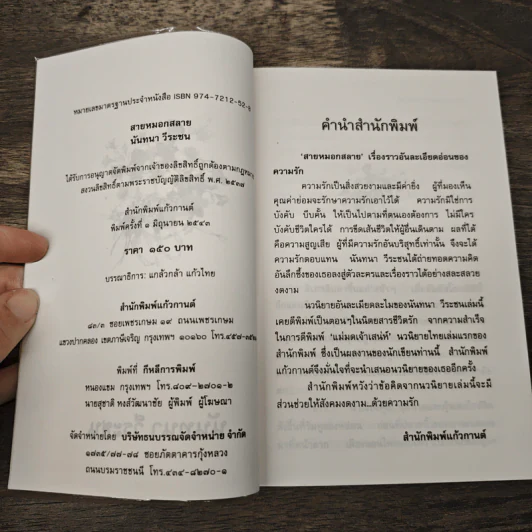 หมายเลขมาตรฐานประจำหนังสือ ISBN 974-7212-52-6
สายหมอกสลาย
นันทนา วีระชน
ได้รับการอนุญาตจัดพิมพ์จากเจ้าของลิขสิทธิ์ถูกต้องตามกฎหมาย
สงวนลิขสิทธิ์ตามพระราชบัญญัติลิขสิทธิ์ พ.ศ. ๒๕๓๗
สำนักพิมพ์แก้วกานต์
พิมพ์ครั้งที่ ๑ มิถุนายน ๒๕๔๓
ราคา ๑๕๐ บาท
บรรณาธิการ: แกล้วกล้า แก้วไทย
สำนักพิมพ์แก้วกานต์
๘๓/๓ ซอยเพชรเกษม ๑๙ ถนนเพชรเกษม
แขวงปากคลอง เขตภาษีเจริญ กรุงเทพฯ ๑๐๑๖๐ โทร.๔๕๗-๓๕๒
พิมพ์ที่ กีหลีการพิมพ์
หนองแขม กรุงเทพฯ โทร.๘๐๙-๒๗๐๑-๒
นายสุชาติ หงส์วัฒนาชัย ผู้พิมพ์ ผู้โฆษณา
จัดจำหน่ายโดย บริษัทธนบรรณจัดจำหน่าย จำกัด
๑๗๓๕/๗๗-๗๘ ซอยภัตตาคารกุ้งหลวง
ถนนบรมราชชนนี โทร.๔๓๔-๘๒๗๐-๑
คำนำสำนักพิมพ์
'สายหมอกสลาย' เรื่องราวอันละเอียดอ่อนของ
ความรัก
ความรักเป็นสิ่งสวยงามและมีค่ายิ่ง ผู้ที่มองเห็น
คุณค่าย่อมจะรักษาความรักเอาไว้ได้ ความรักมิใช่การ
บังคับ บีบคั้น ให้เป็นไปตามที่ตนเองต้องการ ไม่มีใคร
บังคับชีวิตใครได้ การขีดเส้นชีวิตให้ผู้อื่นเดินตาม ผลที่ได้
คือความสูญเสีย ผู้ที่มีความรักอันบริสุทธิ์เท่านั้น จึงจะได้
ความรักตอบแทน นันทนา วีระชนได้ถ่ายทอดความคิด
อันลึกซึ้งของเธอลงสู่ตัวละครและเรื่องราวได้อย่างสละสลวย
งดงาม
นวนิยายอันละเมียดละไมของนันทนา วีระชนเล่มนี้
เคยตีพิมพ์เป็นตอนๆในนิตยสารชีวิตรัก จากความสำเร็จ
ในการตีพิมพ์ 'แม่มดเจ้าเสน่ห์' นวนิยายไทยเล่มแรกของ
สำนักพิมพ์ ซึ่งเป็นผลงานของนักเขียนท่านนี้ สำนักพิมพ์
แก้วกานต์จึงมั่นใจที่จะนำเสนอนวนิยายของเธออีกครั้ง
สำนักพิมพ์หวังว่าข้อคิดจากนวนิยายเล่มนี้จะมี
ส่วนช่วยให้สังคมงดงาม..ด้วยความรัก
สำนักพิมพ์แก้วกานต์